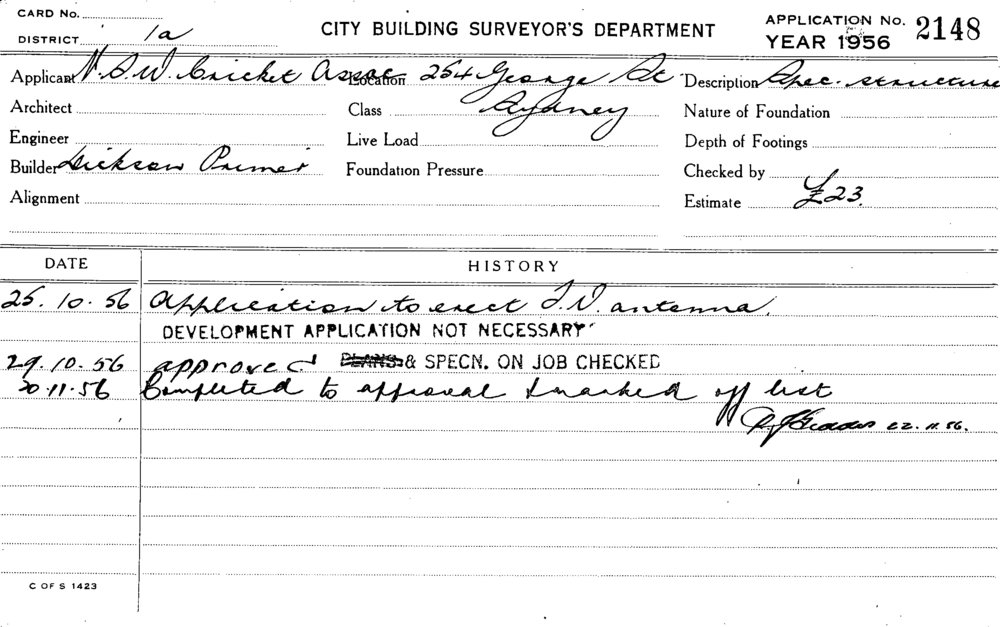 CARD No.
DISTRICT 1a
CITY BUILDING SURVEYOR'S DEPARTMENT
APPLICATION No. 2148
YEAR 1956
Applicant N.S.W. Cricket Assoc Location 254 George St Description Spec. structure
Architect Class Sydney Nature of Foundation
Engineer Live Load Depth of Footings
Builder Dickson Primer Foundation Pressure Checked by
Alignment Estimate £23.
DATE HISTORY
25.10.56 Application to erect T.V. antenna.
DEVELOPMENT APPLICATION NOT NECESSARY
29.10.56 approved PLANS & SPECN. ON JOB CHECKED
20.11.56 Completed to approval & marked off list
22.11.56.
C OF S 1423